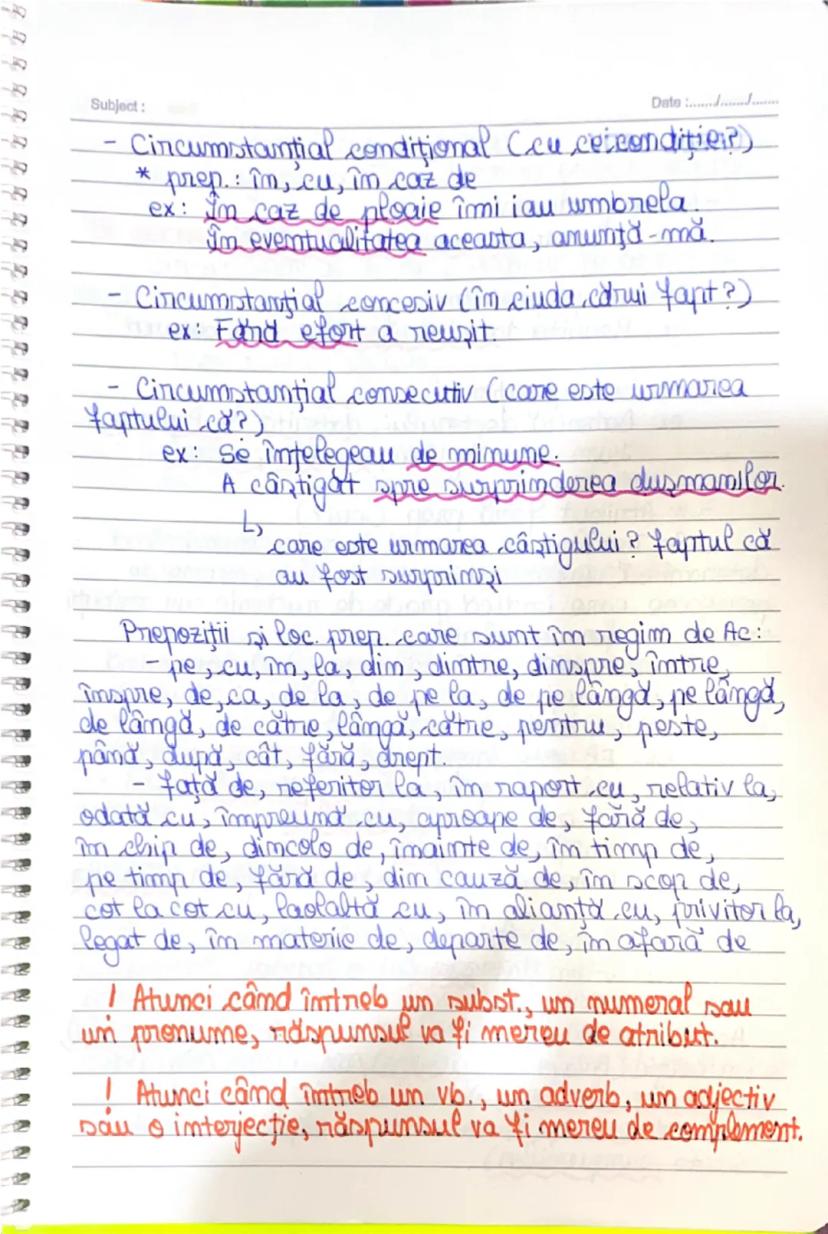 Subject :
Date :....../....../.......
- Circumstanțial condițional (cu ce condiție?)
* prep.: în, cu, în caz de
ex: În caz de ploaie îmi iau umbrela.
În eventualitatea aceasta, anunță-mă.
- Circumstanțial concesiv (în ciuda cărui fapt?)
ex: Fără efort a reușit.
- Circumstanțial consecutiv (care este urmarea
faptului că?)
ex: Se înțelegeau de minune.
A câștigat spre surprinderea dușmanilor.
↳ care este urmarea câștigului? faptul că
au fost surprinși
Prepoziții și loc. prep. care sunt în regim de Ac:
- pe, cu, în, la, din, dintre, dinspre, între,
înspre, de, ca, de la, de pe la, de pe lângă, pe lângă,
de lângă, de către, lângă, către, pentru, peste,
până, după, cât, fără, drept.
- față de, referitor la, în raport cu, relativ la,
odată cu, împreună cu, aproape de, fără de,
în chip de, dincolo de, înainte de, în timp de,
pe timp de, fără de, din cauză de, în scop de,
cot la cot cu, laolaltă cu, în alianță cu, privitor la,
legat de, în materie de, departe de, în afară de
! Atunci când întreb un subst., un numeral sau
un pronume, răspunsul va fi mereu de atribut.
! Atunci când întreb un vb., un adverb, un adjectiv
sau o interjecție, răspunsul va fi mereu de complement.